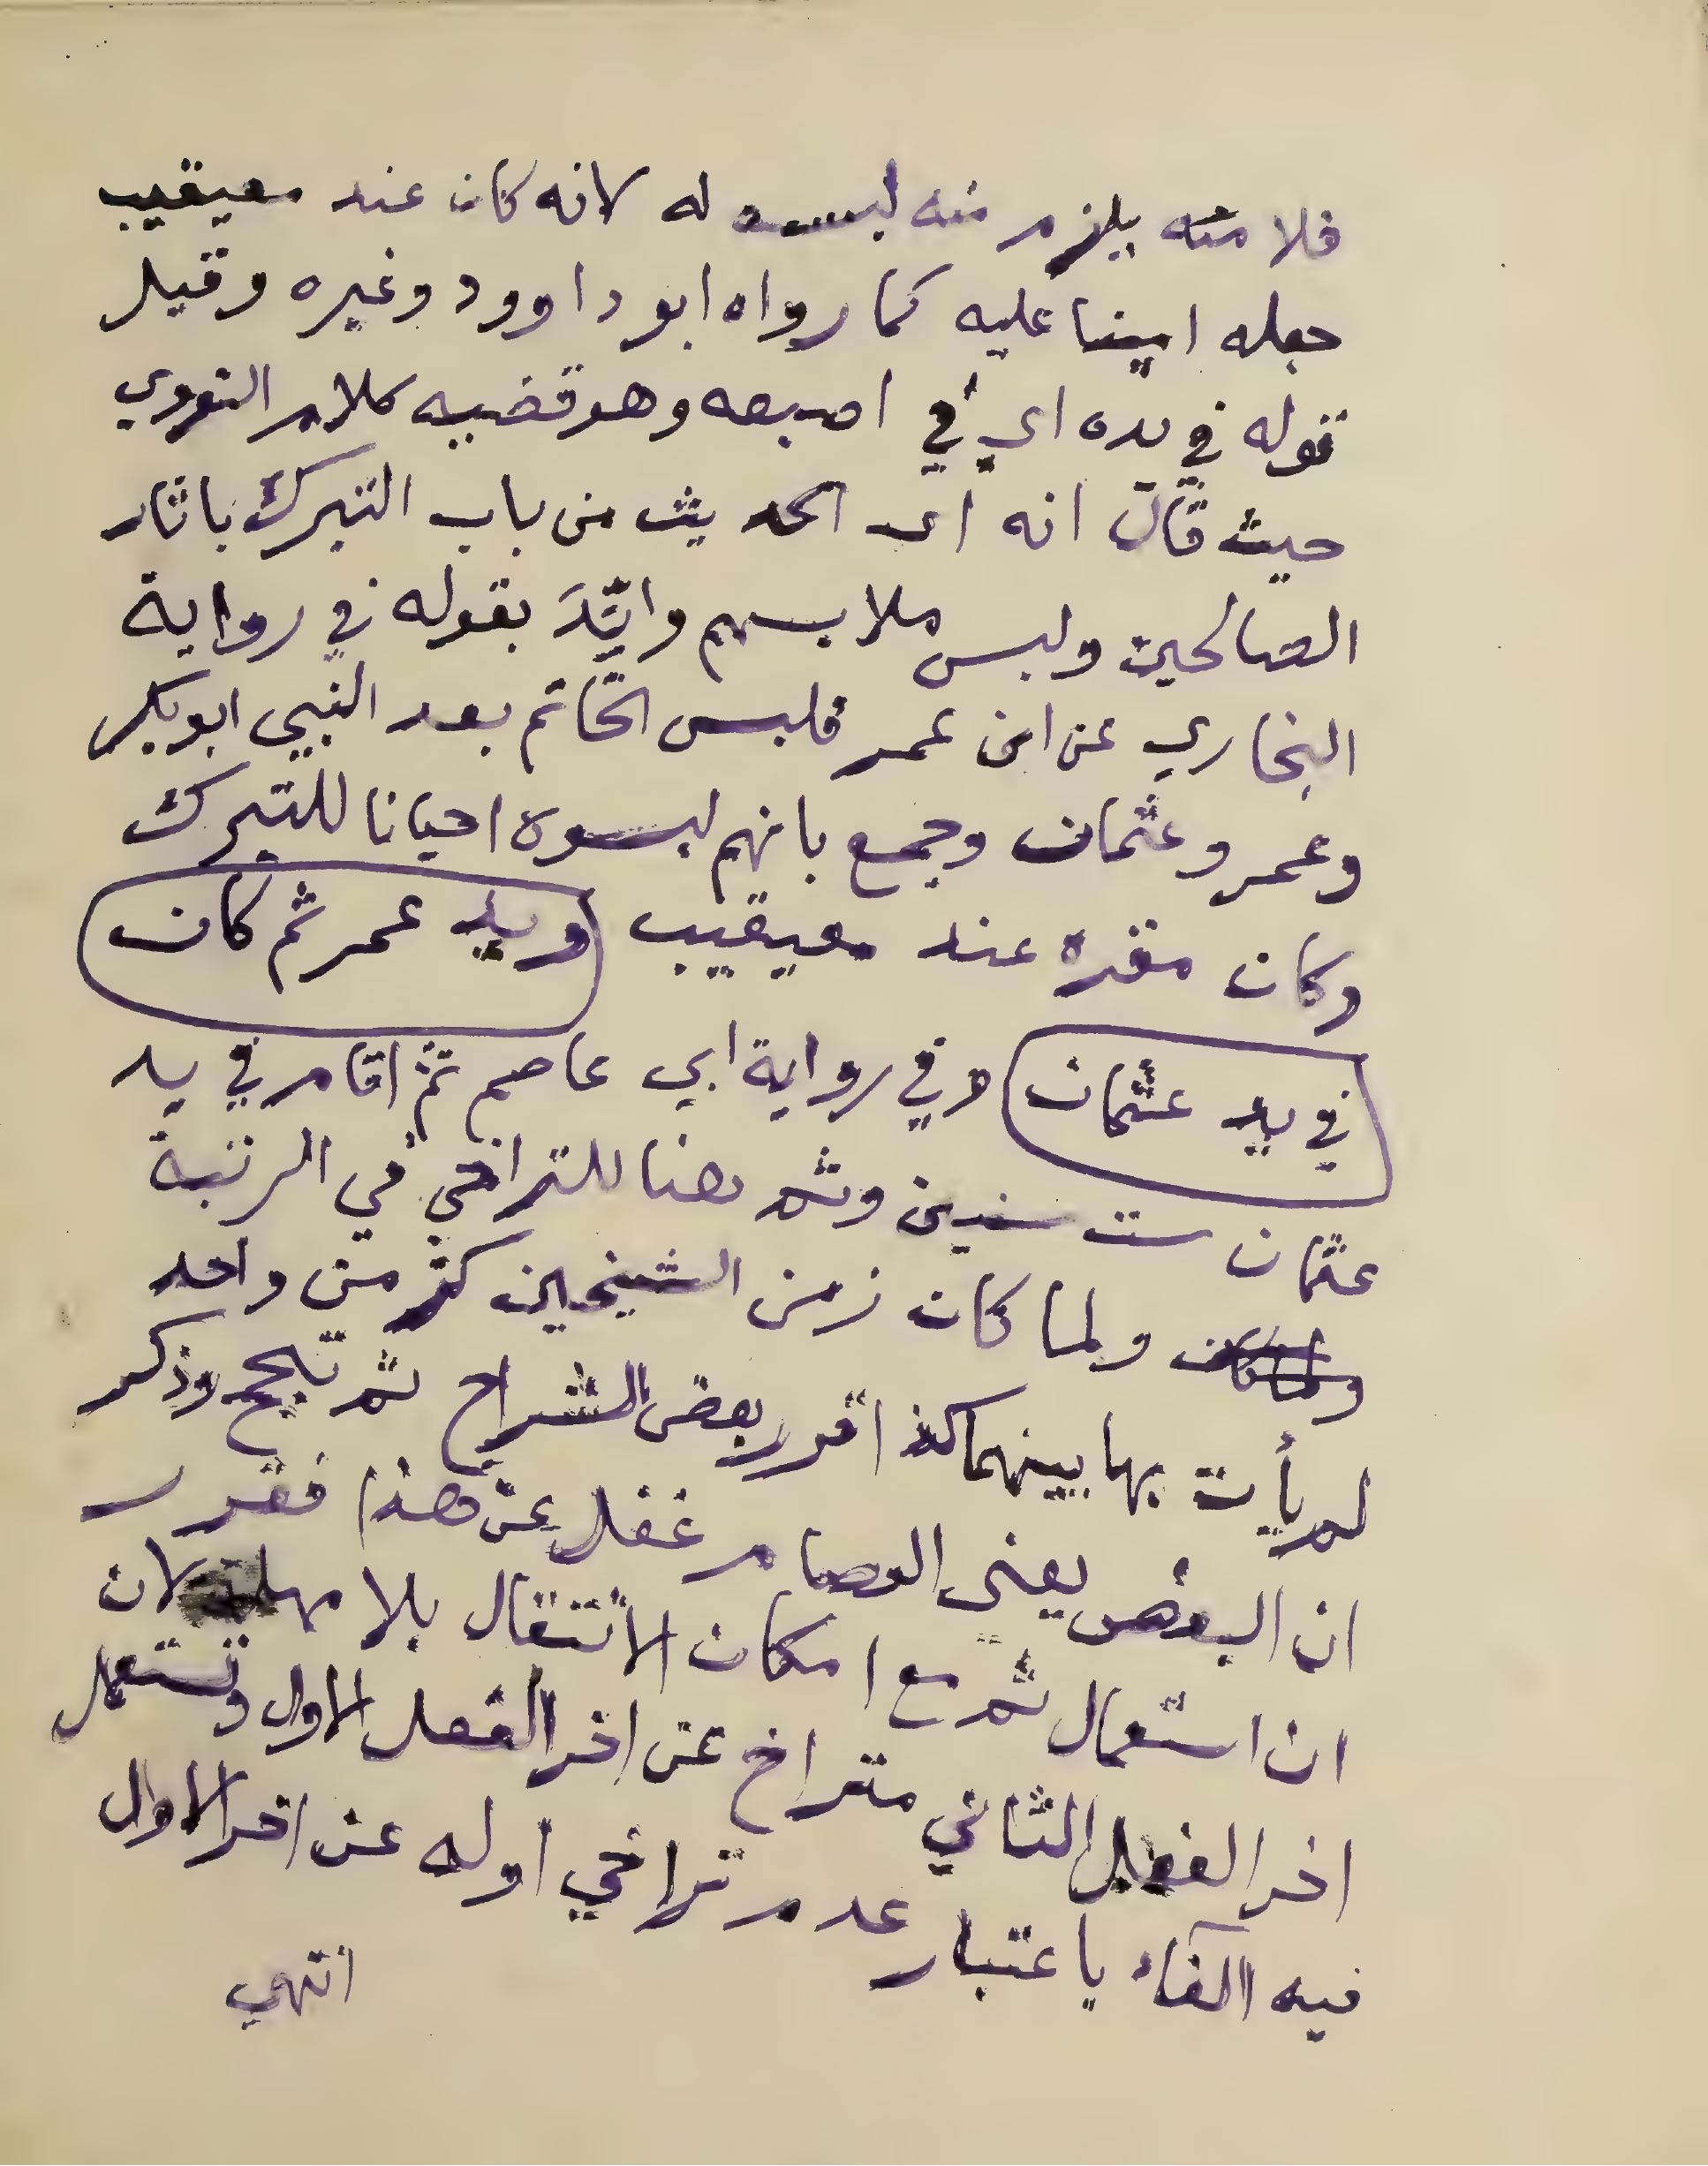 فلا منه يلزم منه لبسه له لانه كان عند معيقيب
جعله امينا عليه كما رواه ابو داوود وغيره وقيل
قوله في يده اي في اصبعه وهو قضيه كلام النووي
حيث قال انه اى الحديث من باب التبرك باثار
الصالحين ولبس ملابسهم وايِّدَ بقوله في رواية
البخاري عن ابن عمر فلبس الخاتم بعد النبي ابو بكر
وعمر وعثمان وجمع بانهم لبسوه احيانا للتبرك
وكان مقره عند معيقيب ويد عمر ثم كان
في يد عثمان وفي رواية ابي عاصم ثم اقام في يد
عثمان ست سنين وثم هنا للتراخي في الرتبة
ولما كان ولما كان زمن الشيخين كثر من واحد
لم يأت بها بينهما كذا قرر بعض الشراح ثم تبجح وذكر
ان البعض يعنى العصام غفل عن هذا فقرر
ان استعمال ثم مع امكان الانتقال بلا مهلة لان
اخر الفعل الثاني متراخ عن اخر الفعل الاول وتستعمل
فيه الفاء باعتبار عدم تراخي اوله عن اخر الاول
انتهي